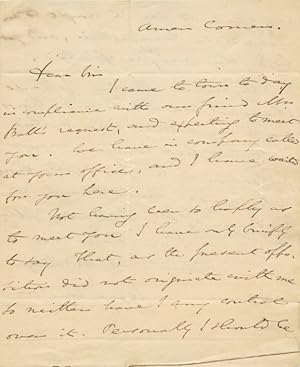 Amen Corner.
Dear Sir
I came to town to day
in compliance with our friend Mr
Ball's request, and expecting to meet
you. We have in company called
at your office, and I have waited
for you here.
Not having been so lucky as
to meet you I have only briefly
to say that, as the present oppo
sition did not originate with me
so neither have I any control
over it. Personally I should be